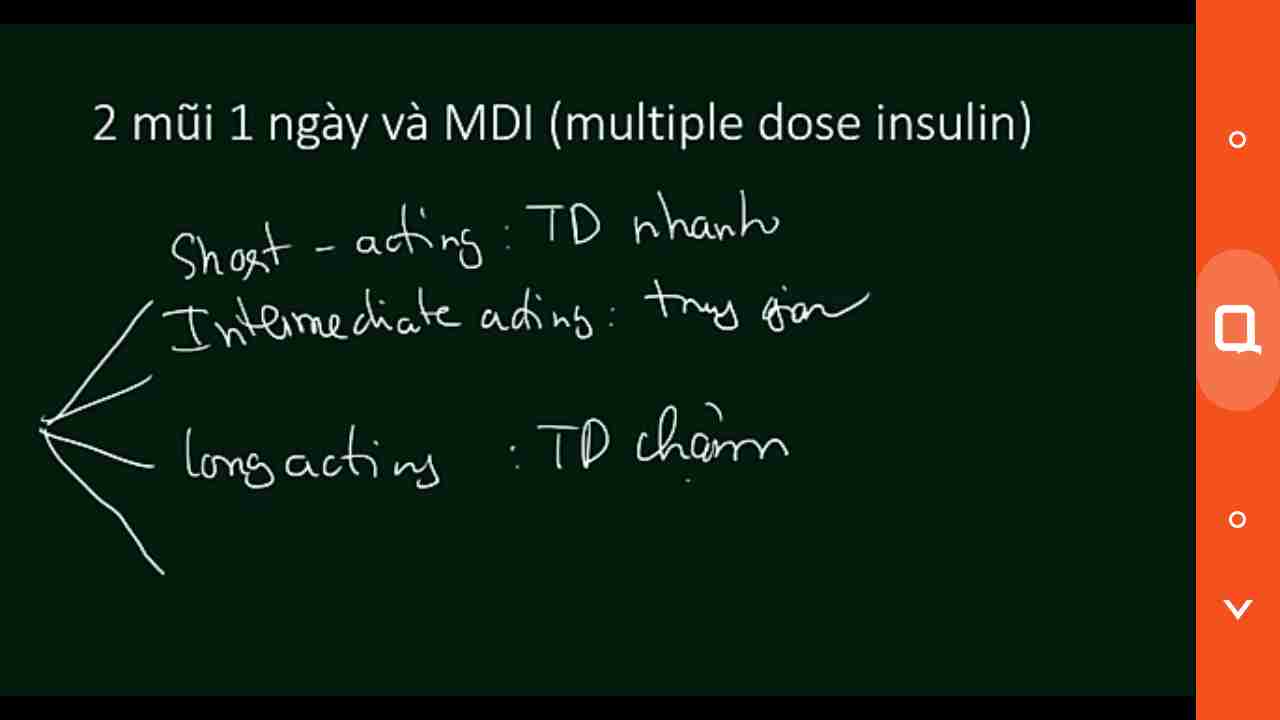 2 mũi 1 ngày và MDI (multiple dose insulin)
Short - acting : TD nhanh
Intermediate acting : trung gian
Long acting : TD chậm